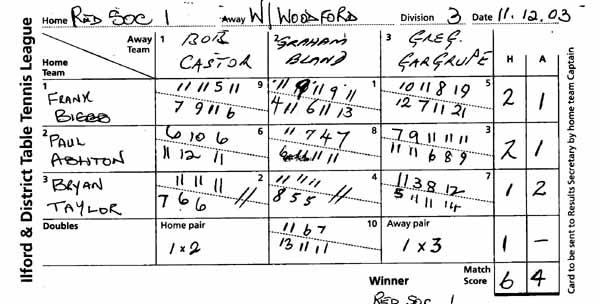 Ilford & District Table Tennis League
Home RED SOC 1 Away W/WOODFORD Division 3 Date 11.12.03
Away Team 1 BOB CASTOR 2 GRAHAM BLAND 3 GREG GARGRUPE H A
Home Team
1 FRANK 11 11 5 11 9 11 9 11 9 11 1 10 11 8 19 5 2 1
7 9 11 6 4 11 6 11 13 12 7 11 21
2 PAUL ASHTON 6 10 6 6 11 7 4 7 8 7 9 11 11 11 3 2 1
11 12 11 11 11 11 11 6 8 9
3 BRYAN TAYLOR 11 11 11 2 11 11 11 4 11 3 8 12 7 1 2
7 6 6 8 5 5 5 11 11 14
Doubles Home pair 1x2 11 6 7 10 Away pair 1x3 1 -
13 11 11
Winner RED SOC 1 Match Score 6 4
Card to be sent to Results Secretary by home team Captain